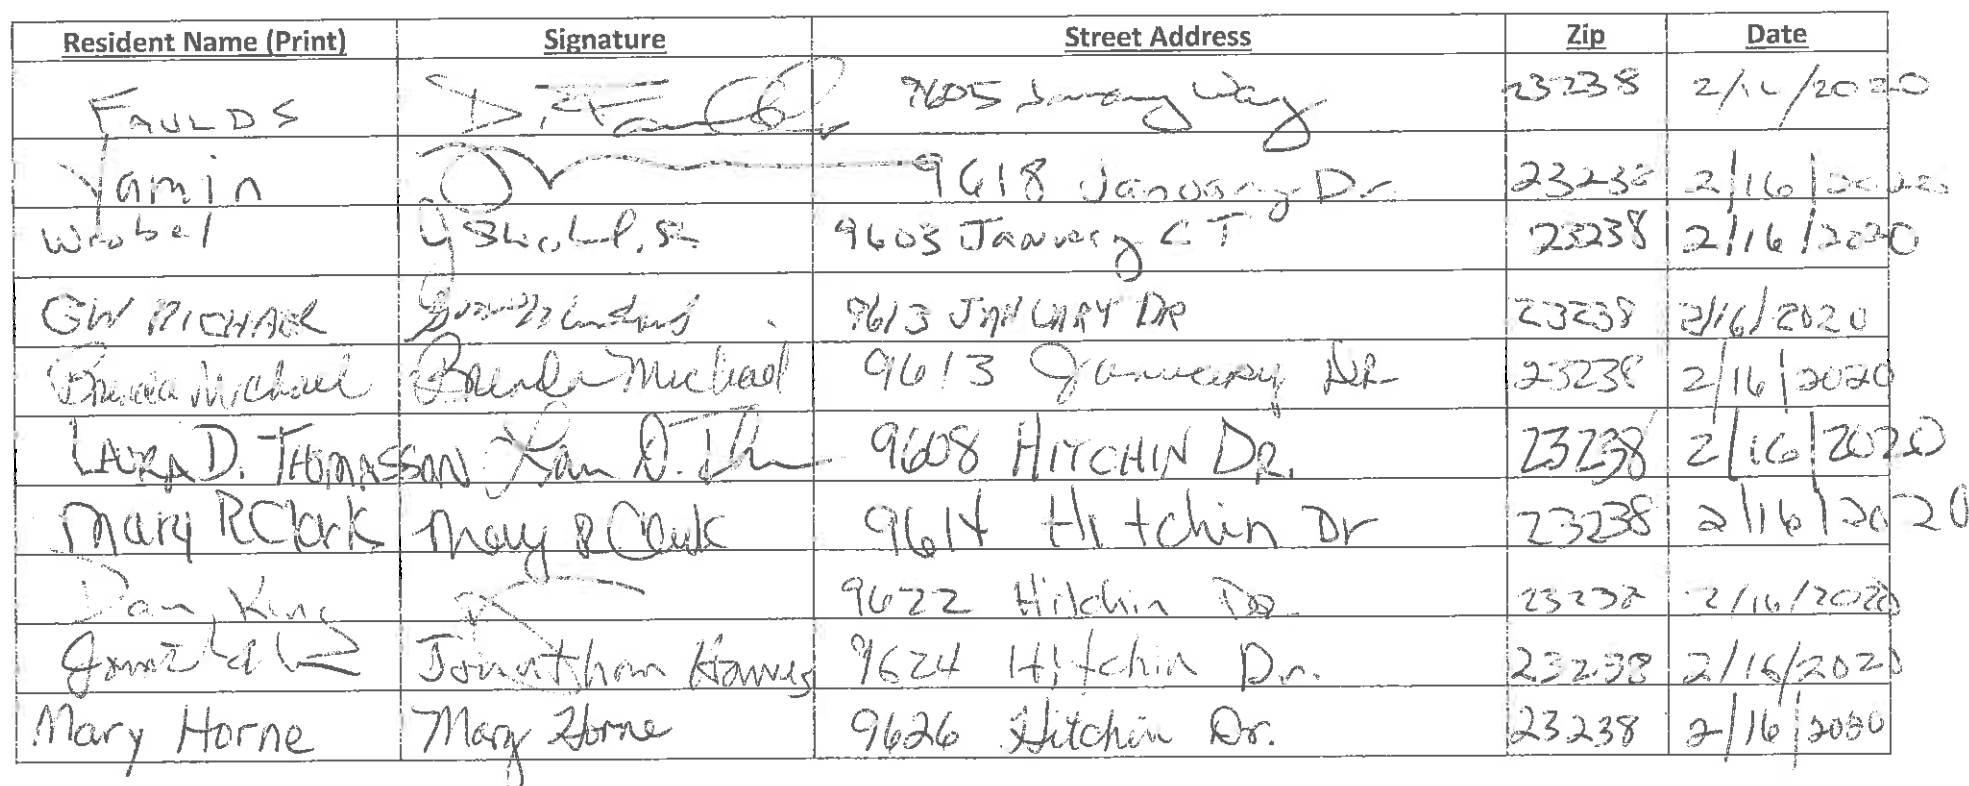 Resident Name (Print) Signature Street Address Zip Date
FAULDS D. F. Faulds 9605 January Way 23238 2/16/2020
Yamin 9618 January Dr. 23238 2/16/2020
Wrobel 9603 January CT 23238 2/16/2020
GW MICHAEL 9613 JANUARY DR 23238 2/16/2020
Brenda Michael Brenda Michael 9613 January DR 23238 2/16/2020
LAURA D. THOMASSON 9608 HITCHIN DR. 23238 2/16/2020
Mary R Clark Mary R Clark 9614 Hitchin Dr 23238 2/16/2020
Dan King 9622 Hitchin DR. 23238 2/16/2020
Jonathan Hawes 9624 Hitchin Dr. 23238 2/16/2020
Mary Horne Mary Horne 9626 Hitchin Dr. 23238 2/16/2020